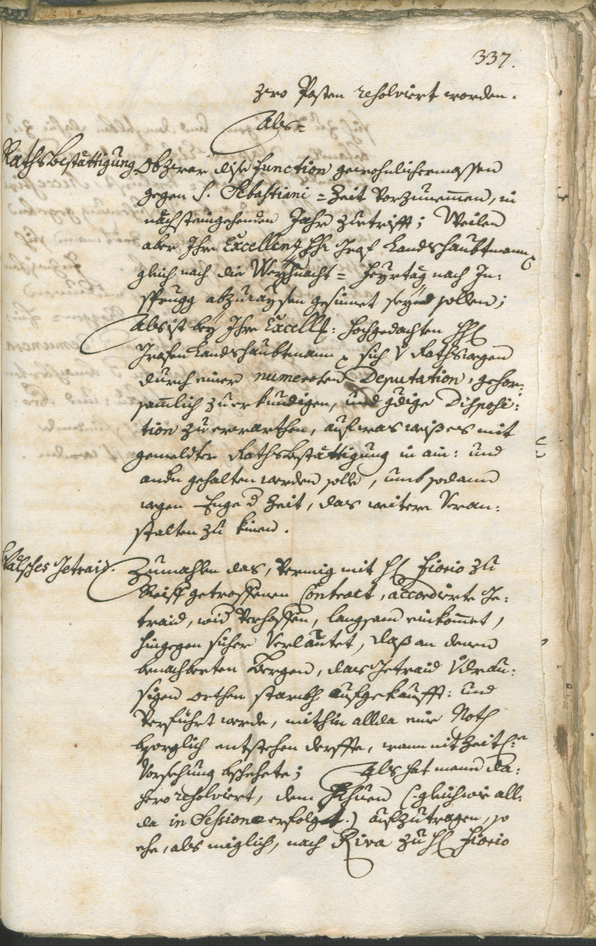 337.
zwo Posten resolviert worden.
Als=
Rathsbestättigung Obzwar dise Function gewohnlichermassen
gegen S. Sebastiani=Zeit vorzunemmen, in
nächsteingehenden Jahr zutrifft; Weilen
aber Ihre Excellenz HH. Graf Landshaubtmann
gleich nach die Weyhnacht=Feyrtäg nach In:
sprugg abzuraysen gesinnet seyn sollen;
Als ist bey Ihre Excell: hochgedachten HH.
Grafen Landshaubtmann sich d Raths wegen
durch einer numerosen Deputation, gehor:
samblich zuerkundigen, und gdige Disposi:
tion zuerwarthen, auf was weis es mit
gemelter Rathsbestättigung in ain: und
andn gehalten werden solle, umb sodann
wegen Enge d Zeit, das weitere Veran:
stalten zu könen.
Wälsches Getraid. Zumahlen das, vermig mit H. Fiorio zu
Reiff getroffenen Contract, accordirte Ge:
traid, wid verhoffen, langsam einkomet,
hingegen sicher verlautet, daß an denen
benachbarten Bergen, das Getraid
sigen orthen starckh aufgekaufft: und
verführt werde, mithin allda eine Noth
besorglich entstehen derffte, wann nit Zeitl:
Vorsehung beschehete; Als hat mann da:
hero resolviert, dem (: gleichwie all:
da in Sessione erfolget.) aufzutragen, so
ehe, als miglich, nach Riva zu H. Fiorio